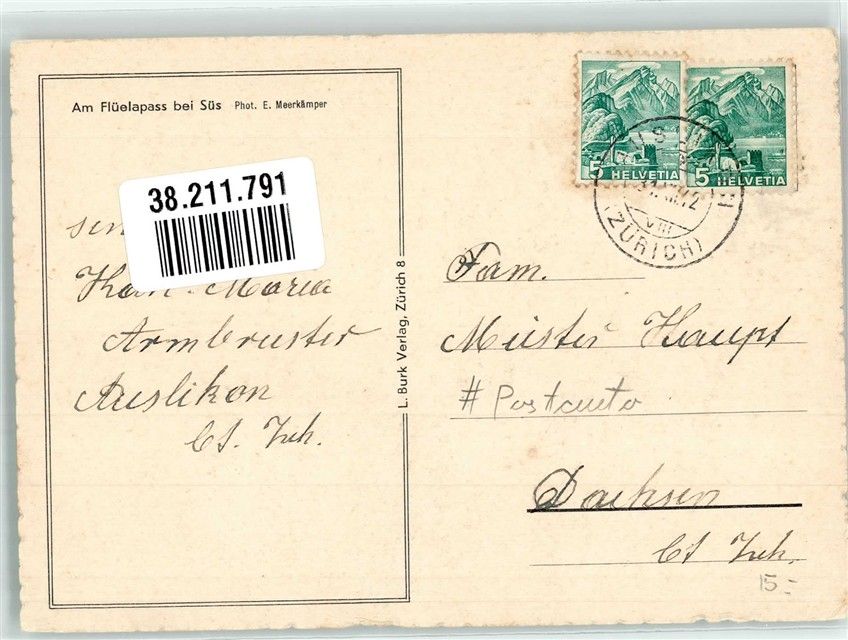 Am Flüelapass bei Süs Phot. E. Meerkämper
38.211.791
Karl-Maria
Armbruster
Auslikon
Ct. Zch.
L. Burk Verlag, Zürich 8
5 HELVETIA
5 HELVETIA
VIII
(ZÜRICH)
Fam.
Meister Haupt
# Postauto
Dachsen
Ct Zch.
15.-